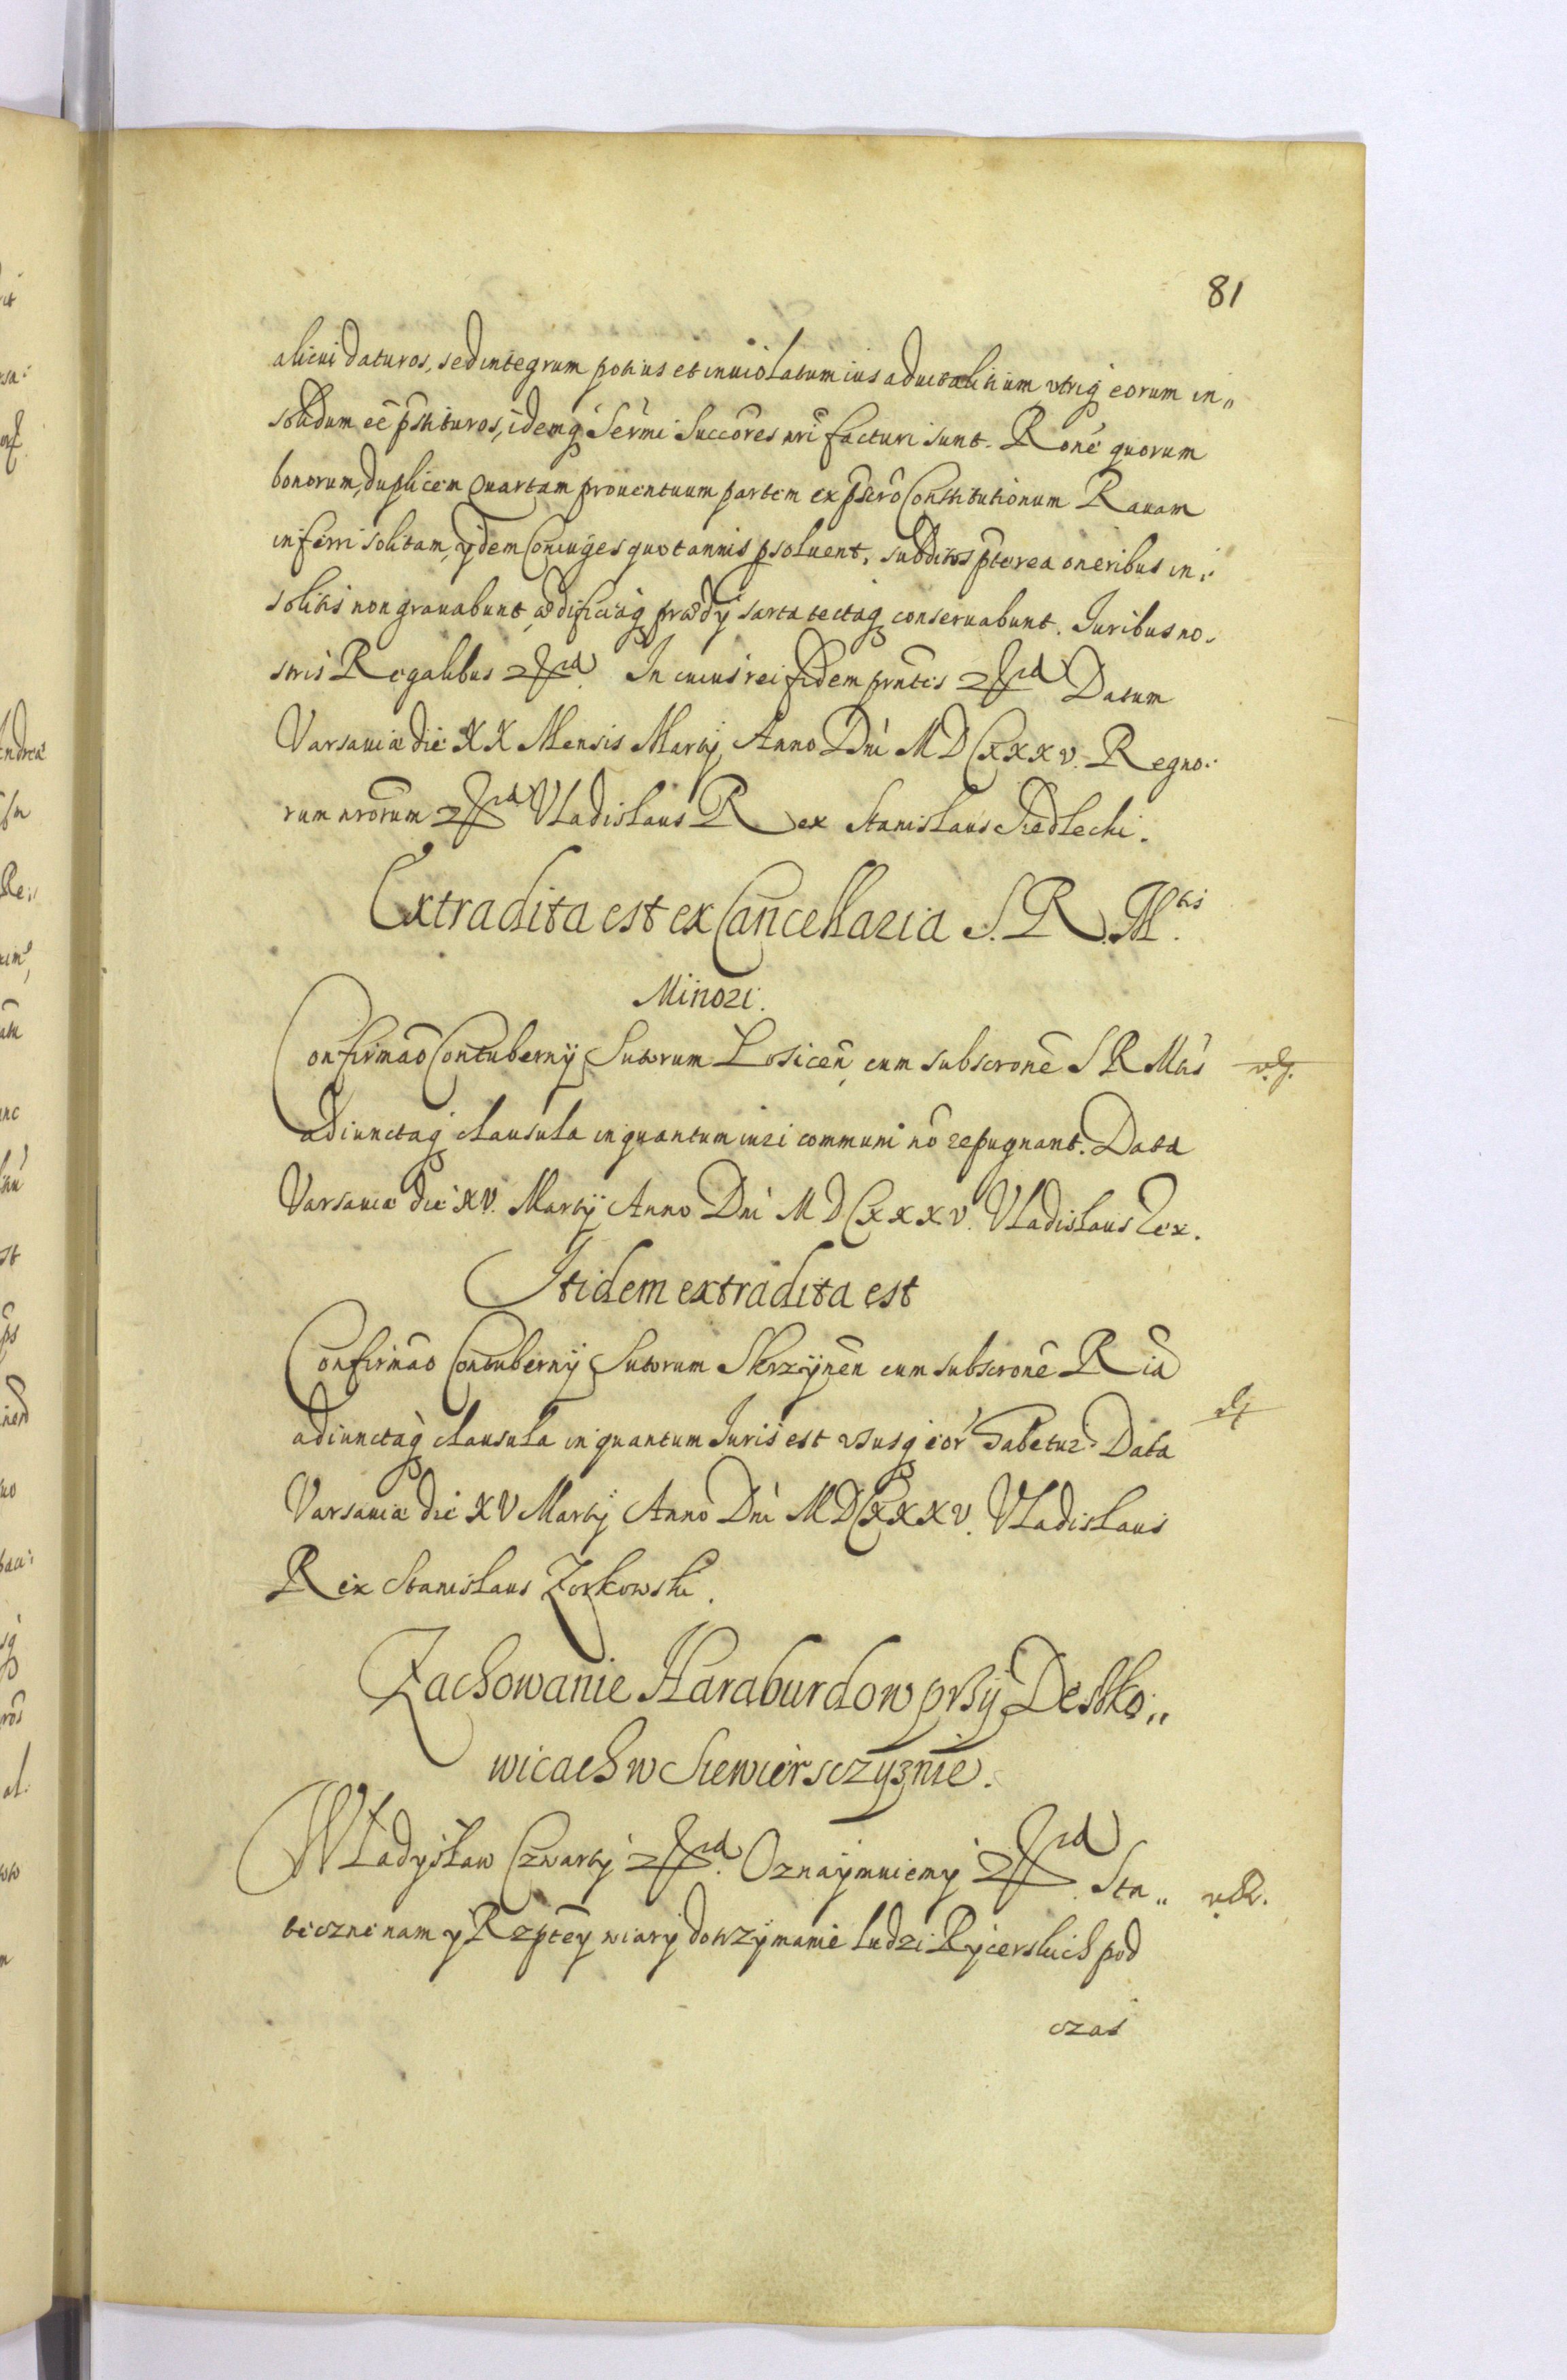 81
alicui daturos, sed integrum potius et inuiolatum ius aduitalitium vtriq eorum in„
solidum eē p̄stituros, idemq́ Sermi Succōres nr̄i facturi sunt. Ronē quorum
bonorum, duplicem Quartam prouentuum partem ex p̄scrō Constitutionum Rauam
inferri solitam, ydem Coniuges quotannis psoluent, subditos p̄terea oneribus in„
solitis non grauabunt, ædificiaq́ prædÿ sarta tectaq conseruabunt. Iuribus no„
stris Regalibus In cuius rei fidem pn̄tes Datum
Varsauiæ die XX Mensis Martÿ Anno Dni MDCXXXV. Regno„
rum nrōrum Vladislaus Rex Stanislaus Siedlecki.
Extradita est ex Cancellaria S. R. M.tis
Minori.
Confirmāo Contubernÿ Sutorum Losiceñ, cum subscronē S R Mtis
adiunctaq́ clausula in quantum iuri communi nō repugnant. Data
Varsauiæ die XV. Martÿ Anno Dni MDCXXXV. Vladislaus Rex.
Itidem extradita est
Confirmāo Contubernÿ Sutorum Skrzÿnēn cum subscronē Riā
adiunctaq́ clausula in quantum Iuris est vsusq eor habetur Data
Varsauiæ die XV Martÿ Anno Dni MDCXXXV. Vladislaus
Rex Stanislaus Zorkowski.
Zachowanie Haraburdow przÿ Desko„
wicach w Siewiersczyznie.
Władysław Czwartÿ Oznaÿmuiemÿ Sta„
teczne nam y Rzptey wiarÿ dotrzÿmanie ludzi Rÿcerskich pod
czas